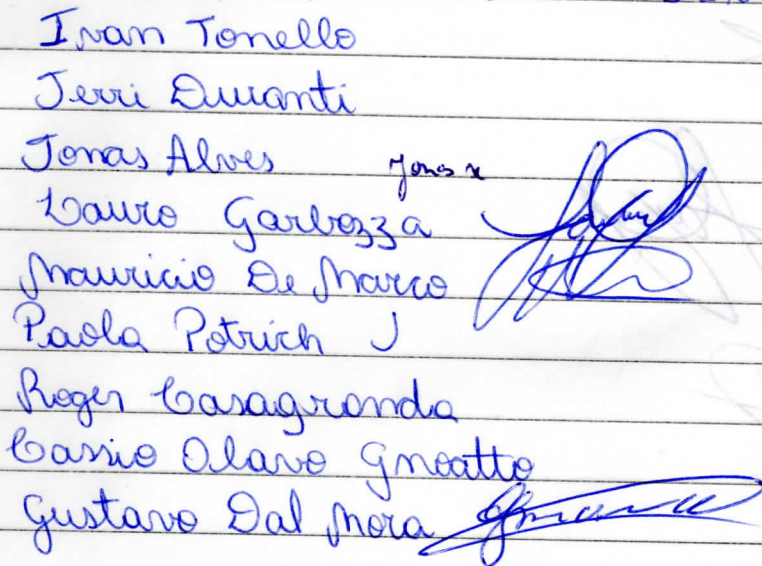 Ivan Tonello
Jerri Duranti
Jonas Alves Jonas x
Lauro Garbozza
Mauricio De Marco
Paola Potrich J
Roger Casagranda
Cassio Olavo Gnoatto
Gustavo Dal Mora